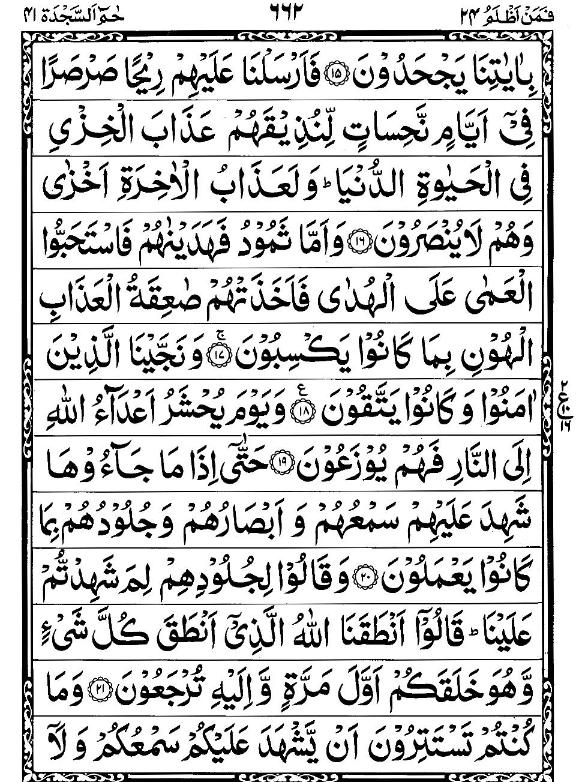 فَمَنْ اَظْلَمُ ٢٤ ٦٦٢ حٰمٓ السَّجْدَة ٤١
بِاٰيٰتِنَا يَجْحَدُوْنَ ۝١٥ فَاَرْسَلْنَا عَلَيْهِمْ رِيْحًا صَرْصَرًا
فِيْٓ اَيَّامٍ نَّحِسَاتٍ لِّنُذِيْقَهُمْ عَذَابَ الْخِزْيِ
فِي الْحَيٰوةِ الدُّنْيَا ؕ وَلَعَذَابُ الْاٰخِرَةِ اَخْزٰى
وَهُمْ لَا يُنْصَرُوْنَ ۝١٦ وَاَمَّا ثَمُوْدُ فَهَدَيْنٰهُمْ فَاسْتَحَبُّوا
الْعَمٰى عَلَى الْهُدٰى فَاَخَذَتْهُمْ صٰعِقَةُ الْعَذَابِ
الْهُوْنِ بِمَا كَانُوْا يَكْسِبُوْنَ ۝١٧ ۚ وَنَجَّيْنَا الَّذِيْنَ
اٰمَنُوْا وَكَانُوْا يَتَّقُوْنَ ۝١٨ ع وَيَوْمَ يُحْشَرُ اَعْدَآءُ اللّٰهِ
٢ ع ١٠ ١٦
اِلَى النَّارِ فَهُمْ يُوْزَعُوْنَ ۝١٩ حَتّٰٓى اِذَا مَا جَآءُوْهَا
شَهِدَ عَلَيْهِمْ سَمْعُهُمْ وَ اَبْصَارُهُمْ وَجُلُوْدُهُمْ بِمَا
كَانُوْا يَعْمَلُوْنَ ۝٢٠ وَقَالُوْا لِجُلُوْدِهِمْ لِمَ شَهِدْتُّمْ
عَلَيْنَا ؕ قَالُوْٓا اَنْطَقَنَا اللّٰهُ الَّذِيْٓ اَنْطَقَ كُلَّ شَيْءٍ
وَّهُوَ خَلَقَكُمْ اَوَّلَ مَرَّةٍ وَّاِلَيْهِ تُرْجَعُوْنَ ۝٢١ وَمَا
كُنْتُمْ تَسْتَتِرُوْنَ اَنْ يَّشْهَدَ عَلَيْكُمْ سَمْعُكُمْ وَ لَآ